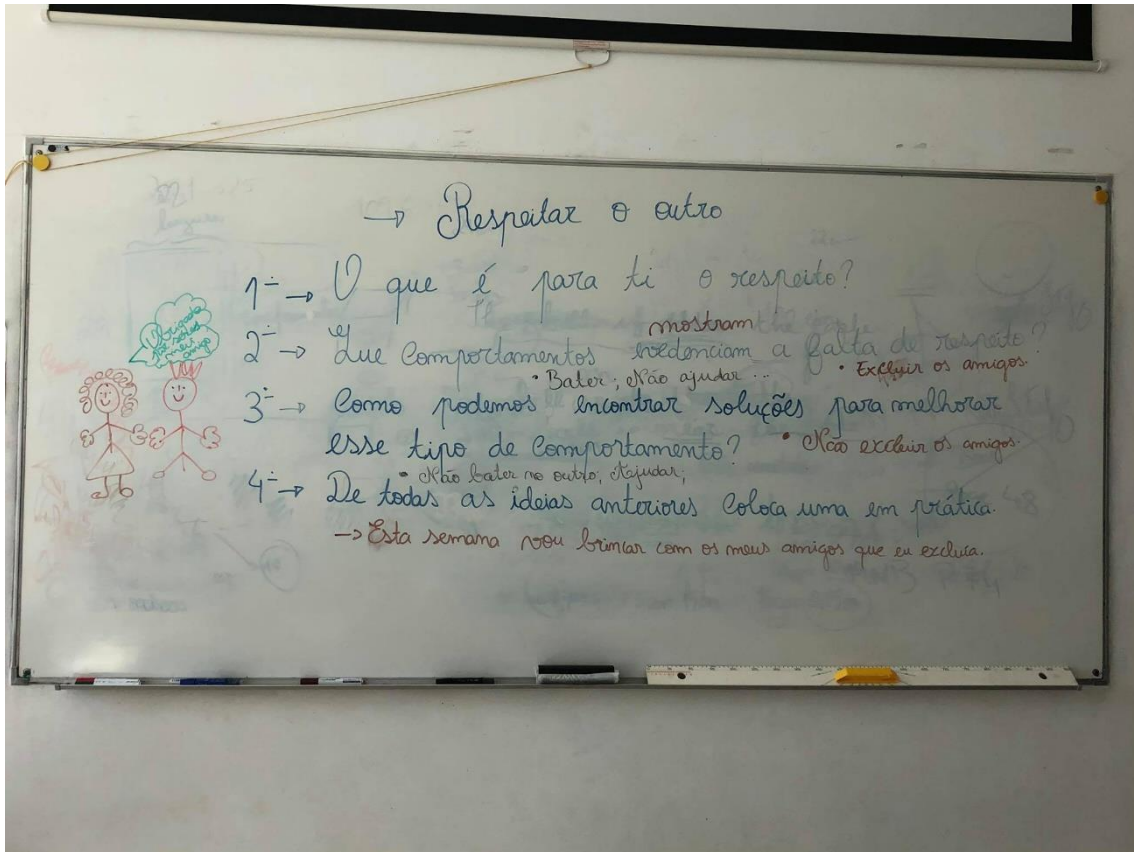 → Respeitar o outro
1- → O que é para ti o respeito?
mostram
2- → Que comportamentos evedenciam a falta de respeito?
• Bater; Não ajudar... • Excluir os amigos.
3- → Como podemos encontrar soluções para melhorar
esse tipo de comportamento? • Não excluir os amigos.
• Não bater no outro; Ajudar;
4- → De todas as ideias anteriores coloca uma em prática.
→ Esta semana vou brincar com os meus amigos que eu excluia.
Obrigada
meu
amigo